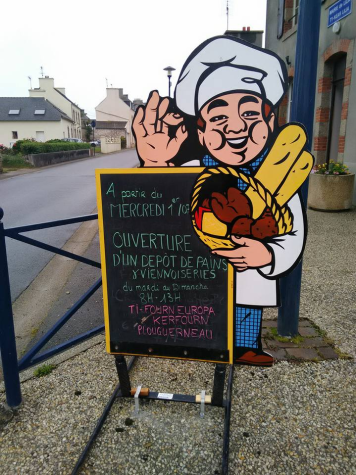 A partir du
MERCREDI 1er
OUVERTURE
D'UN DEPÔT DE PAINS
& VIENNOISERIES
du mardi au Dimanche
8H-13H
TI-FOURN EUROPA
KERFOURN
PLOUGUERNEAU